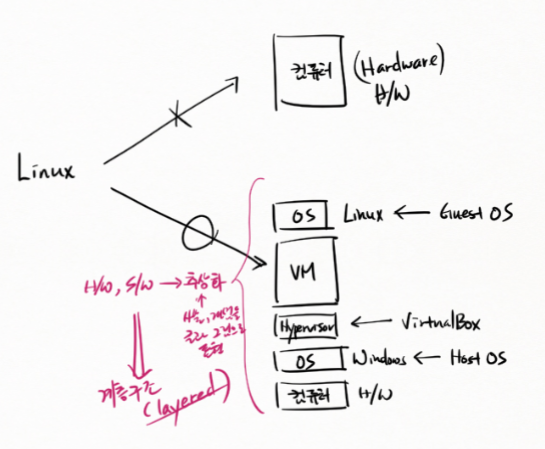 컴퓨터 (Hardware)
H/W
Linux
OS Linux ← Guest OS
VM
H/W, S/W → 추상화
Hypervisor ← VirtualBox
OS Windows ← Host OS
컴퓨터 H/W
계층구조
(layered)